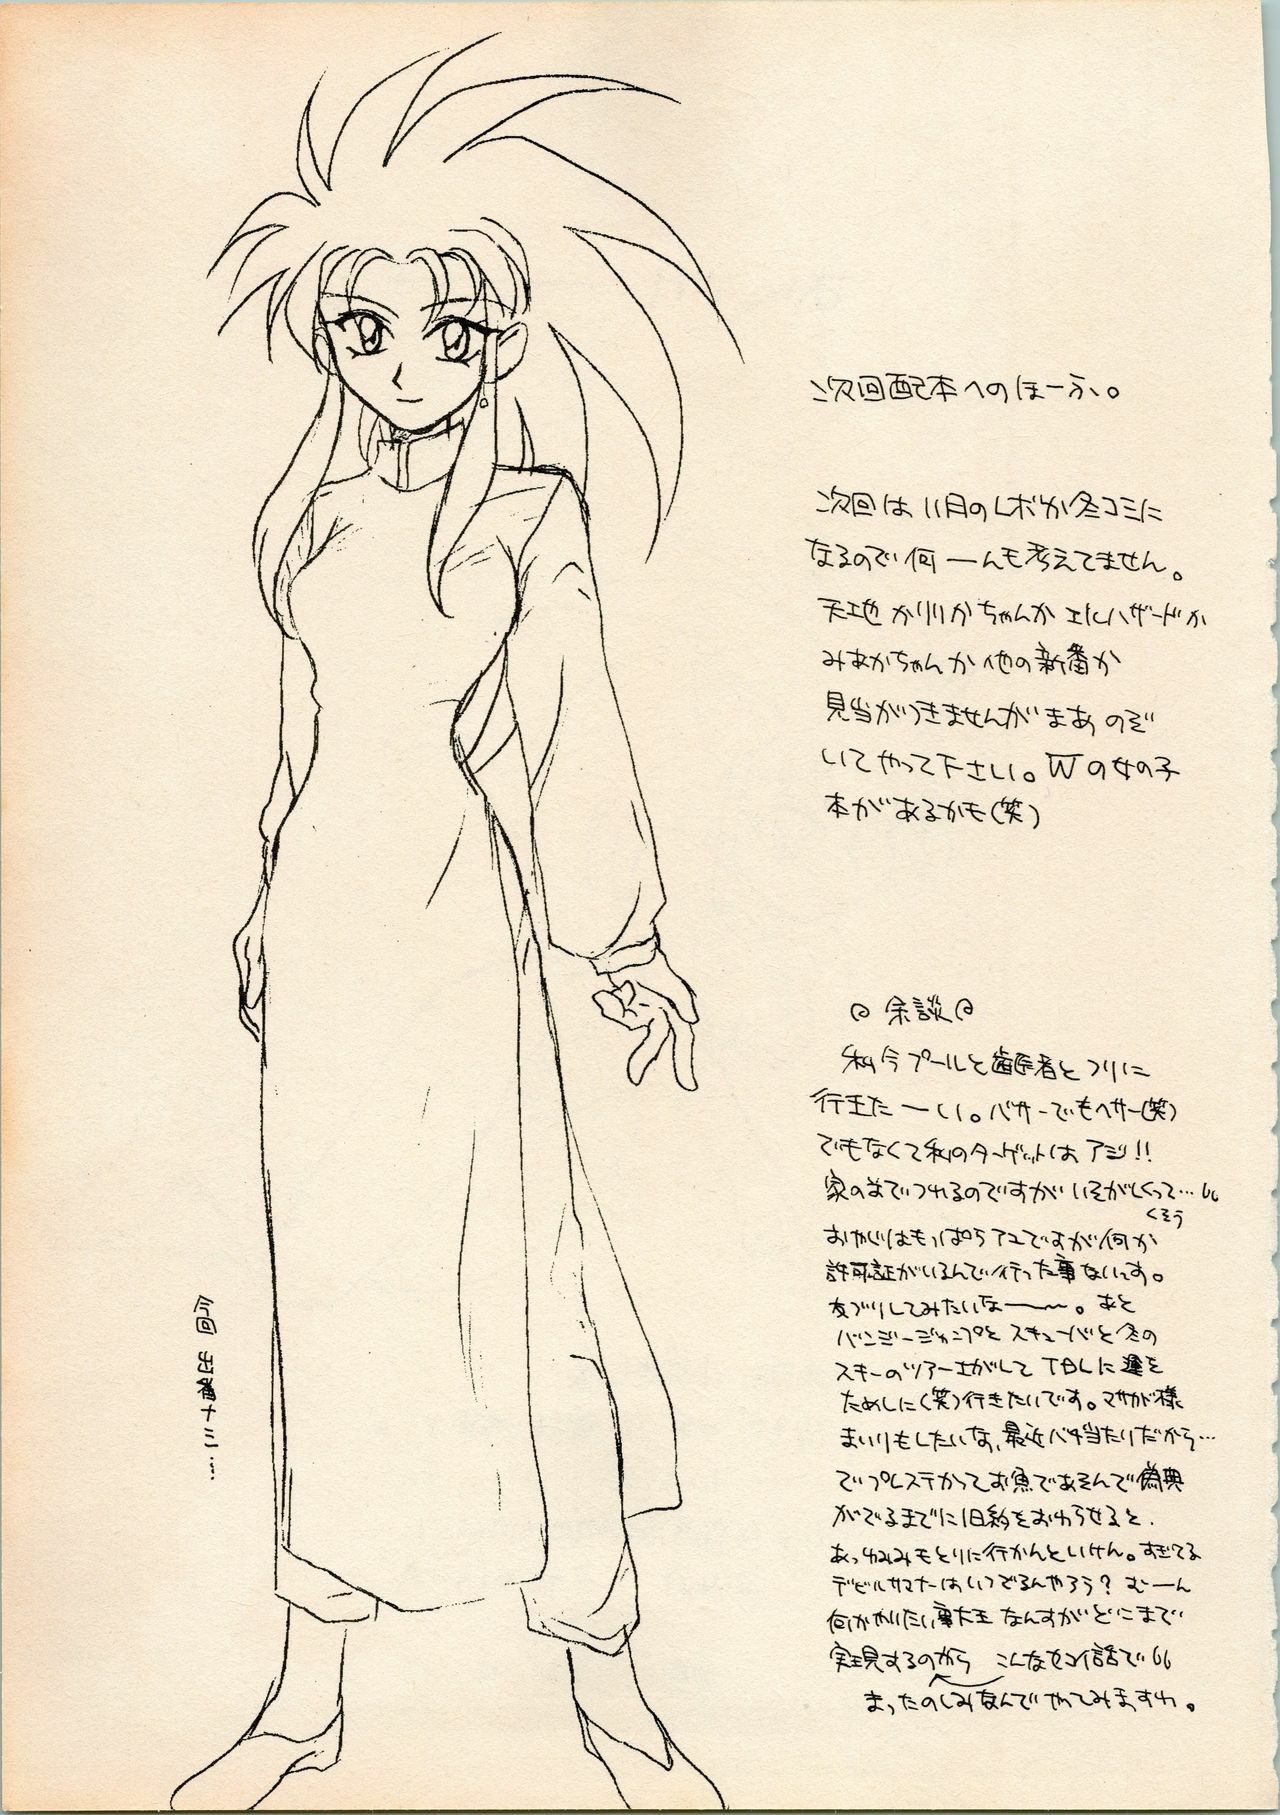 次回配本へのほーふ。
次回は11月のレボか冬コミに
なるので何ーんも考えてません。
天地かリリカちゃんかエルハザードか
みあかちゃんか他の新番か
見当がつきませんがまあのぞ
いてやって下さい。Wの女の子
本があるかも(笑)
余談
私今プールと歯医者とつりに
行きたーい。バサーでもヘサー(笑)
でもなくて私のターゲットはアジ!!
家の前でつれるのですがいそがしくって…
くそう
おやじはもっぱらアユですが何か
許可証がいるんで行った事ないっす。
友づりしてみたいなー〜。あと
バンジージャンプとスキューバと冬の
スキーのツアーさがして TDLに運を
ためしに(笑)行きたいです。マサカド様
まいりもしたいな、最近バチ当たりだから…
でプレステかってお魚であそんで偽典
がでるまでに旧約をおわらせると、
あっ みみもとりに行かんといけん。すぎてる
デビルサマナーはいつでるんやろう?むーん
何かやりたい事大王なんすがどこまで
実現するのやら こんなセコイ話で
またたのしみなんでやってみますわ。
今回 出番ナシ…